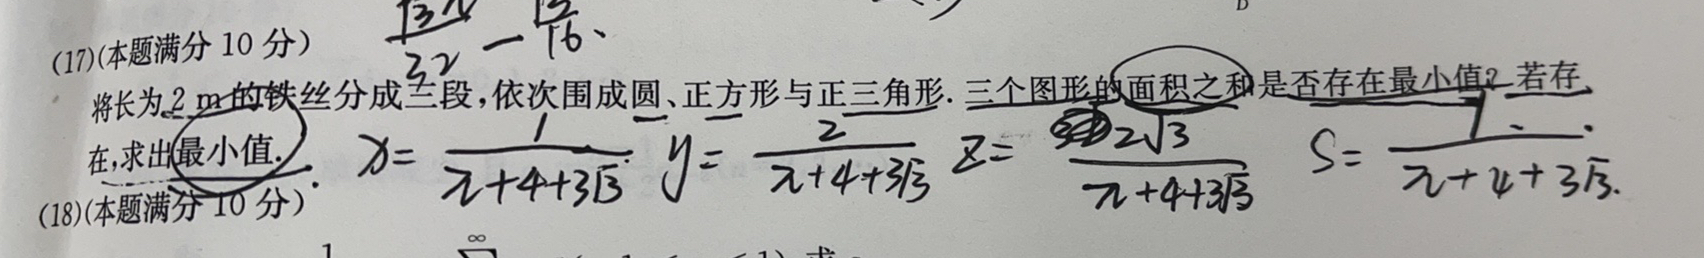 (17)(本题满分 10 分)
√3π/32 - √3/16.
将长为 2 m 的铁丝分成三段,依次围成圆、正方形与正三角形. 三个图形的面积之和是否存在最小值? 若存
在,求出最小值.
x = 1/(π+4+3√3) y = 2/(π+4+3√3) z = 2√3/(π+4+3√3) S = 1/(π+4+3√3).
(18)(本题满分 10 分)